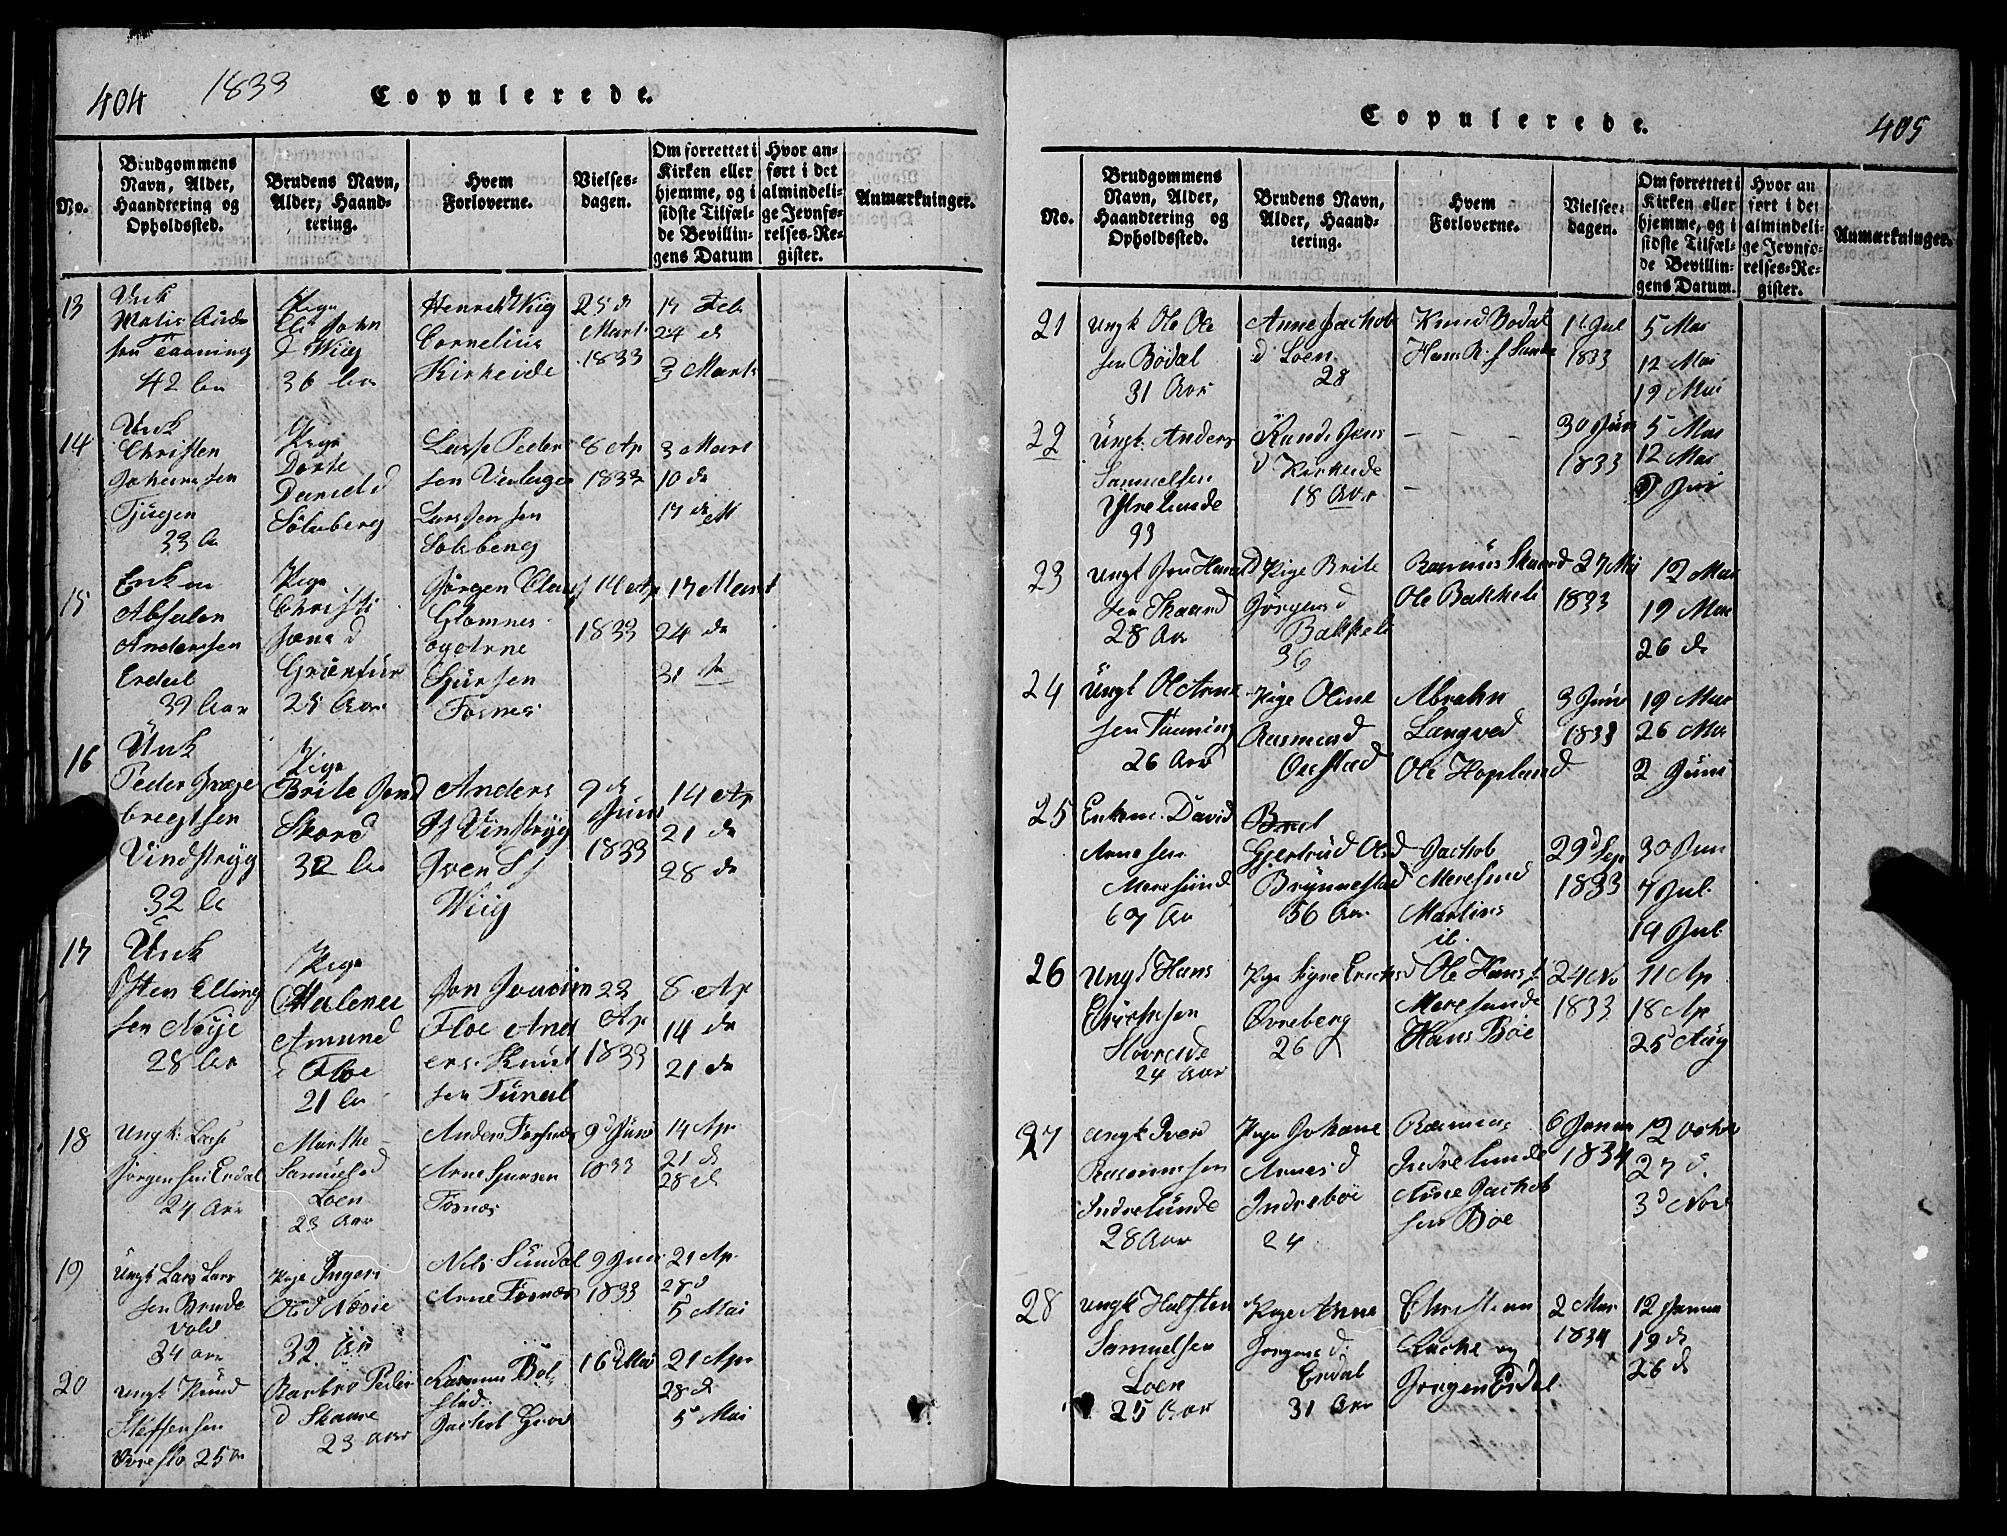 404
1833
Copulerede.
No.
Brudgommens
Navn, Alder,
Haandtering og
Opholdssted.
Brudens Navn,
Alder, Haand-
tering.
Hvem
Forloverne.
Vielses-
dagen.
Om forrettet i
Kirken eller
hjemme, og i
sidste Tilfæl-
de Bevillin-
gens Datum
Hvor an-
ført i det
almindeli-
ge Jevnfø-
relses-Re-
gister.
Anmærkninger.
13
Matis
sen Taaning
42
Pige
John
d Wiig
36
Henrich Wiig
Cornelius
Kirkeide
25 d
Marts
1833
17 Feb
24 d
3 Marts
14
Christen
Johannesen
Tjugen
33
Pige
Dorte
Daniel d
Solsberg
Lasse Peder
sen
sen
Solsberg
8 Ap
1833
3 Mart
10 d
17 d M
15
Enkm
Absalon
Andersen
Erdal
39 Aar
Pige
Christi
Jens d
25 Aar
Jørgen Claus
Glomnes
og Arne
Sjursen
Fosnes
14 Ap
1833
17 Mart
24 d
31
16
Unk
Peder
bregtsen
Vindstryg
32
Pige
Brite Jens d
Skaard
32
Anders
Vinstryg
Iven
Wiig
9 d
Juni
1833
14 Ap
21 d
28 d
17
Unk
Sten Elling
sen
28
Pige
Malene
Amund
d Floe
21
Jon
Floe And
ers Knut
sen Tunal
23
Ap
1833
8 Ap
14 d
21 d
18
Ungk: Lasse
Jørgensen Erdal
27 Aar
Marthe
Samuels d
Loen
23 Aar
Anders Fosnes
Arne Sjursen
Fosnes
9 d Juni
1833
14 Ap
21 d
28 d
19
Ungk Lars Lars
sen Brude
vold
34 Aar
Pige Inger
Ols d
32
Nils Sundal
Arne Fosnes
9 Juni
1833
21 Ap
28 d
5 Mai
20
Ungk Knud
Steffensen
25
Barbro Peder
d Skaare
23 Aar
Rasmus Bol
stad
Jachob
16 d Mai
21 Ap
28 d
5 Mai
Copulerede.
405
No.
Brudgommens
Navn, Alder,
Haandtering og
Opholdssted.
Brudens Navn,
Alder, Haand-
tering.
Hvem
Forloverne.
Vielses-
dagen.
Om forrettet i
Kirken eller
hjemme, og i
sidste Tilfæl-
de Bevillin-
gens Datum.
Hvor an
ført i det
almindeli-
ge Jevnfø-
relses-Re-
gister.
Anmærkninger.
21
Ungk Ole Ole
sen Bødal
31 Aar
Anne Jachob
d Loen
28
Knud Bødal
Hans R. S Sande
1 Jul
1833
5 Mai
12 Mai
19 Mai
22
Ungk. Anders
Samuelsen
Ytrelunde
33
Rande Jens
d Kirkeide
18 Aar
30 Jun
1833
5 Mai
12 Mai
23
Ungk Jens
sen Skaard
28 Aar
Pige Brite
Jørgens d
Bakkeli
36
Rasmus Skaard
Ole Bakkeli
27 Mi
1833
12 Mai
19 Mai
26 d
24
Ungk Ol Arne
sen Taaning
26 Aar
Pige Oline
Rasmus d
Orestad
Abrahn
Langved
Ole Hopland
3 Juni
1833
19 Mai
26 Mai
2 Juni
25
Enkem. David
Arnesen
Meresund
67 Aar
Gjertrud Ols d
Brynnestad
56 Aar
Jachob
Meresund
Martins
ib.
29 d Sep
1833
30 Jun
7 Jul.
14 Jul
26
Ungk Hans
Erichsen
Hovreide
24 Aar
Pige Signe Erichs d
Øvreberg
26
Ole Hans S.
Meresunde
Hans Bøe
24 No
1833
11 Ap
18 Ap
25 Aug
27
Ungk Iver
Rasmussen
Indrelunde
28 Aar
Pige Johane
Arnes d
Indrebøe
24
Rasmus
Indrelunde
Arne Jachob
sen Bøe
6 Janua
1834
12 Octobr
27 d.
3 d Nov
28
Ungk Halsten
Samuelsen
Loen
25 Aar
Pige Anne
Jørgens d:
Erdal
31 Aar
Christian
og
Jørgen Erdal
2 Mar
1834
12 Janua
19 d
26 d